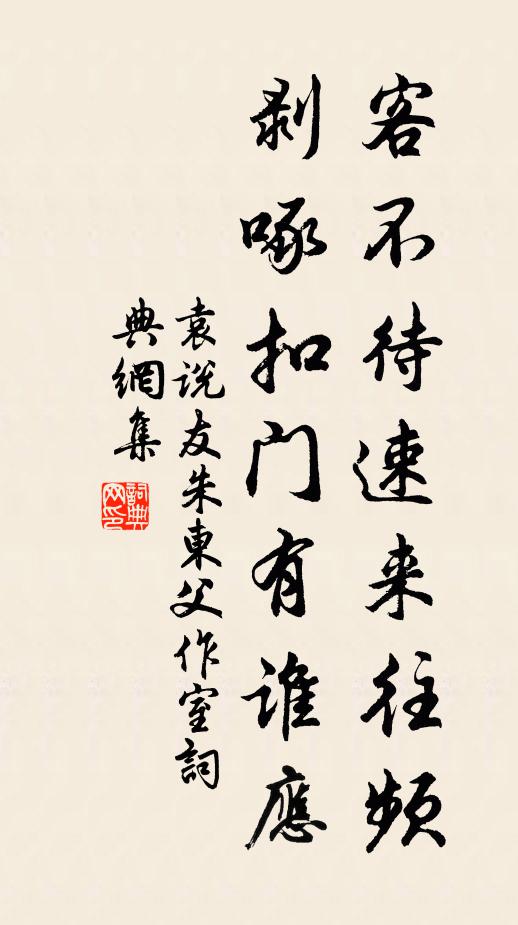 客不待速来往頻
剥啄扣門有誰應
袁说友朱東父作室詞
典網集
詞典
网印